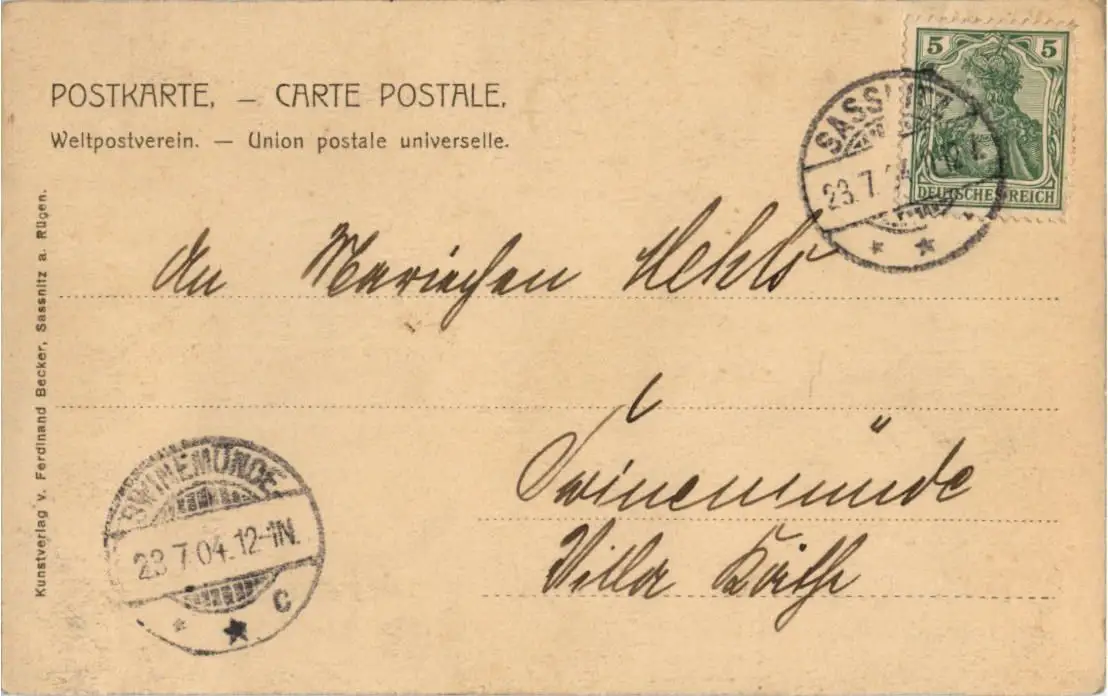 POSTKARTE, — CARTE POSTALE,
Weltpostverein. — Union postale universelle.
5 5
DEUTSCHES REICH
SASSNITZ
23.7.
An Mariechen
Swinemünde
Villa Käthe
SWINEMÜNDE
23.7.04.12-1N.
C
Kunstverlag v. Ferdinand Becker, Sassnitz a. Rügen.